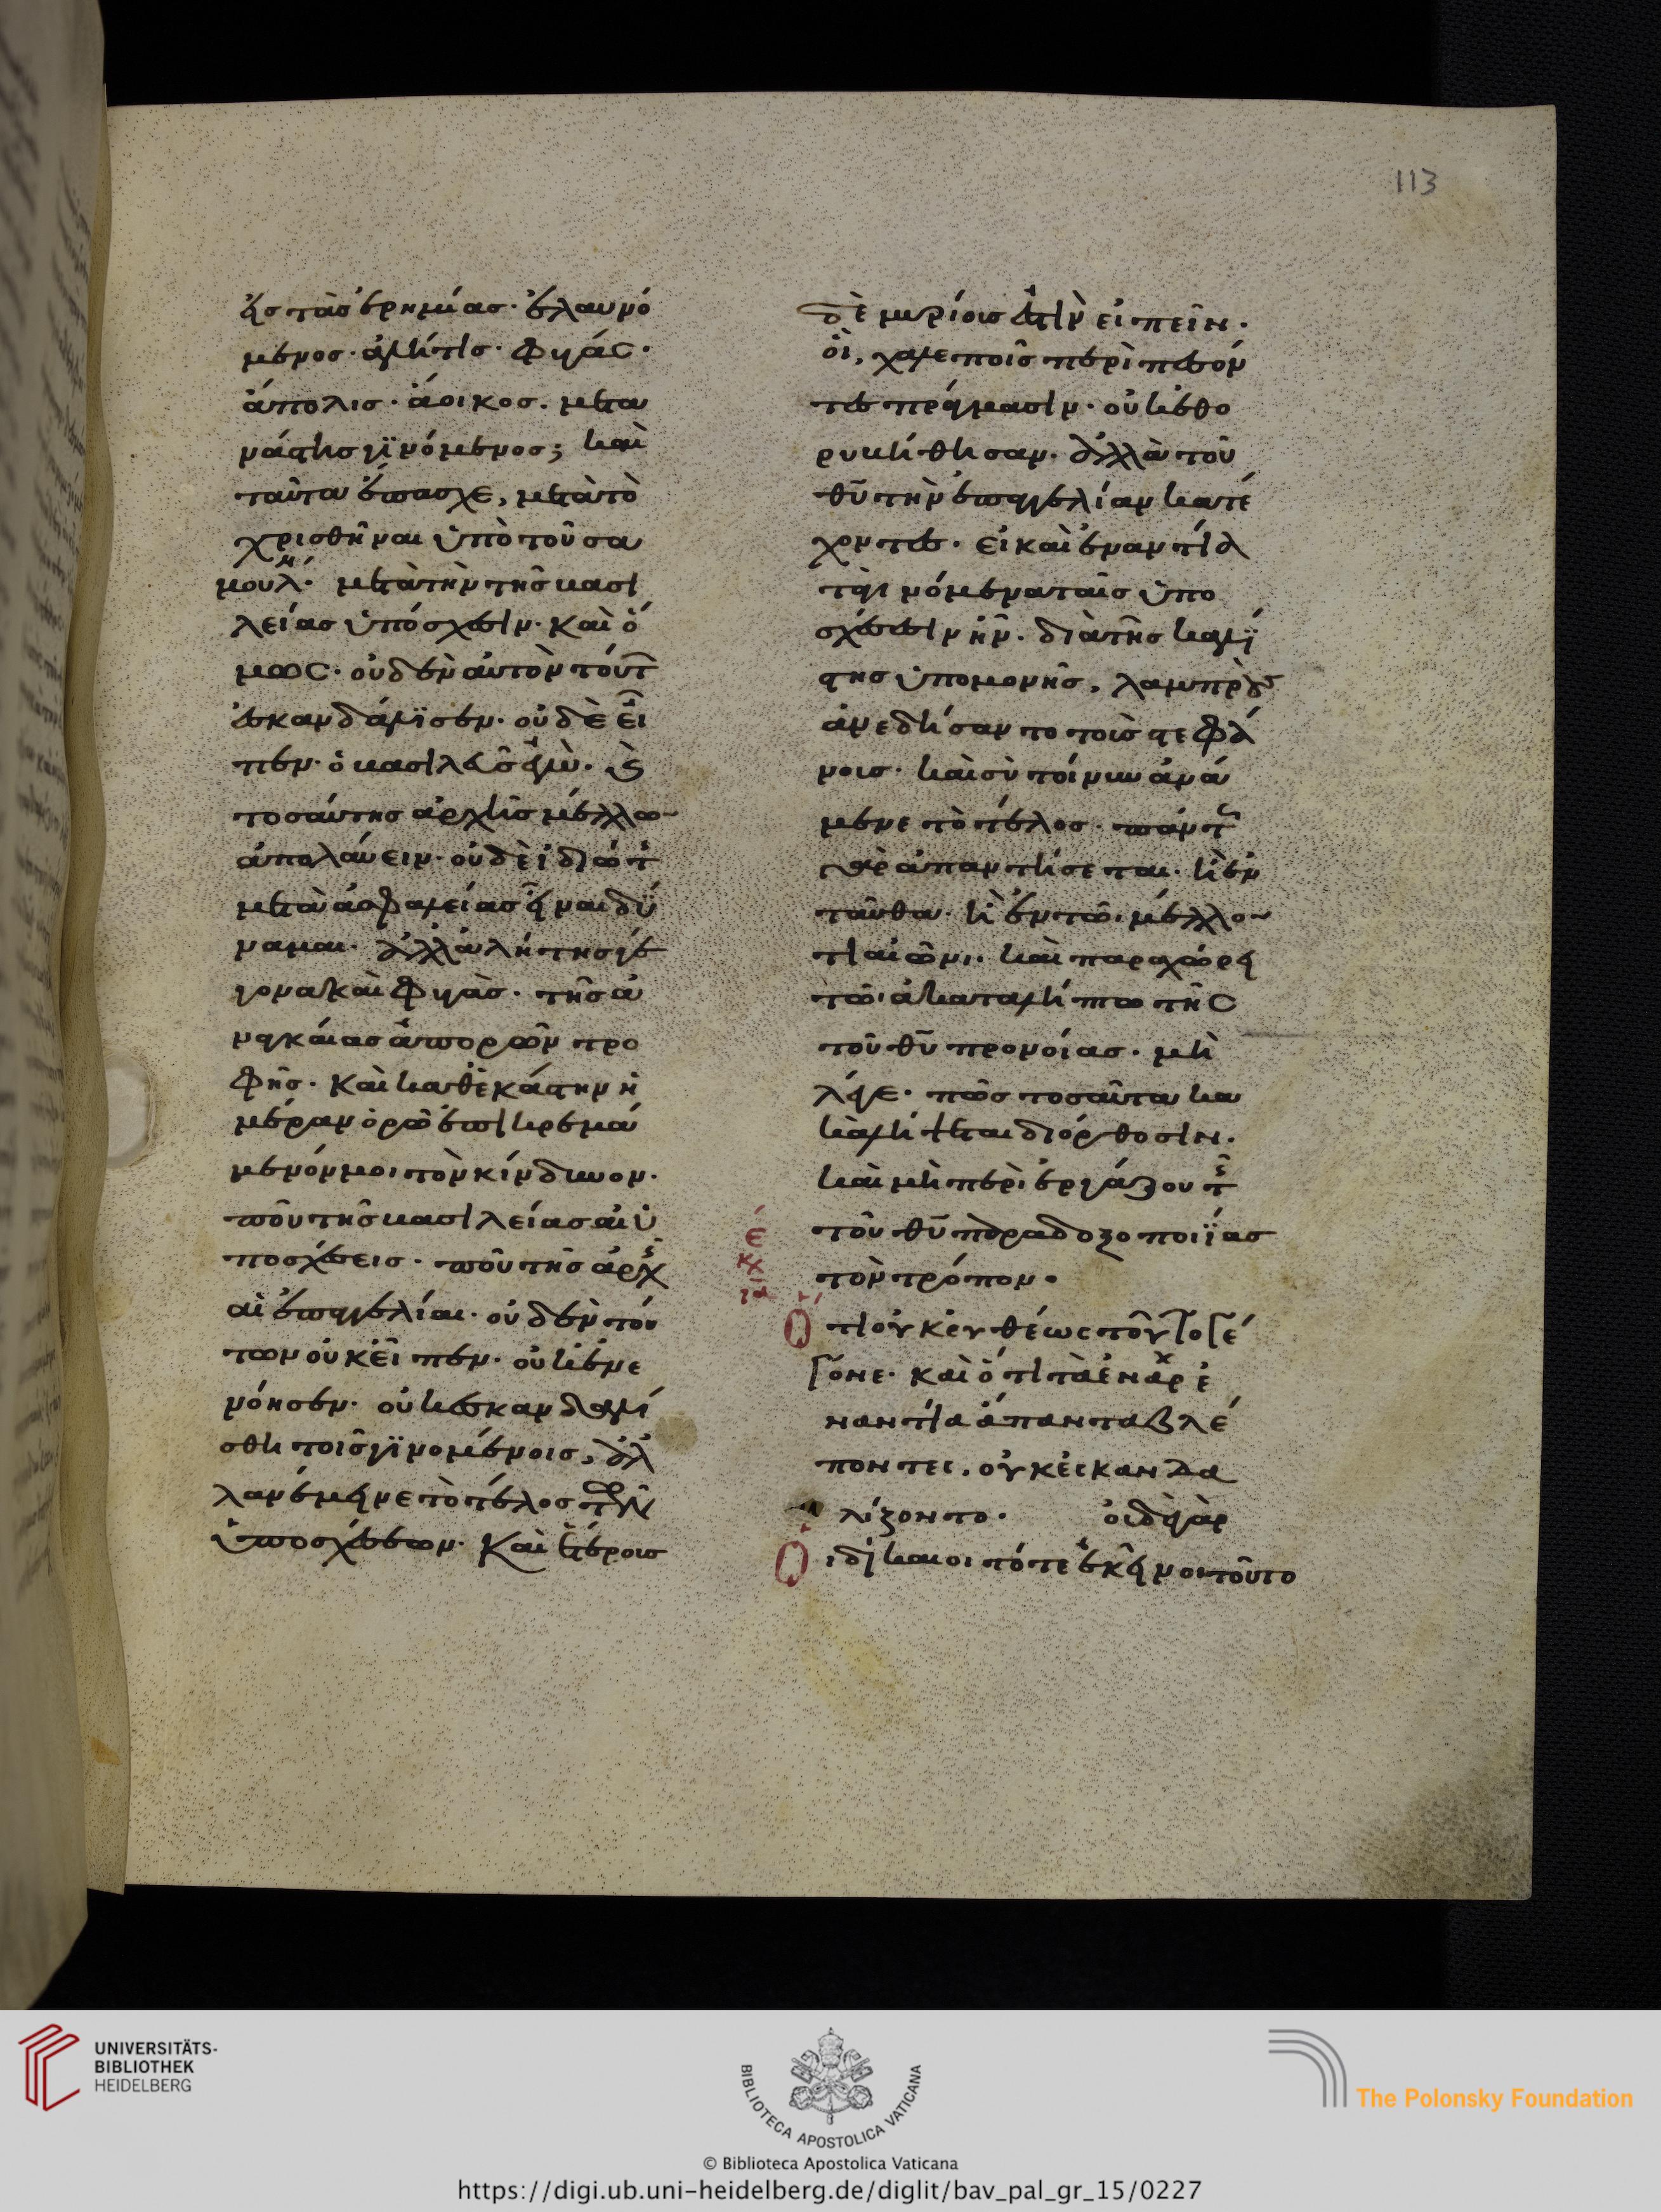 113
εἰς τὰς ἐρημίας· ἐλαυνό
μενος· ἀλήτης· φυγάς·
ἄπολις· ἄοικος· μετα
νάστης γϊνόμενος; καὶ
ταῦτα ἔπασχε, μετὰ τὸ
χρισθῆναι ὑπὸ τοῦ σα
μουήλ· μετὰ τὴν τῆς βασι
λείας ὑπόσχεσιν· καὶ ὅ
μως· οὐδὲν αὐτὸν τούτ
ἐσκανδάλϊσεν· οὐδὲ εἶ
πεν· ὁ βασιλεὺς ἐγὼ· ὁ
τοσαύτης ἀρχῆς μέλλων
ἀπολαύειν· οὐδὲ ἰδιώτ
μετὰ ἀσφαλείας εἶναι δύ
ναμαι· ἀλλὰ ἀλήτης γέ
γονα καὶ φυγὰς· τῆς ἀ
ναγκαίας ἀπορῶν τρο
φῆς· καὶ καθ' ἑκάστην ἡ
μέραν ὁρῶ ἐπικρεμά
μενόν μοι τὸν κίνδυνον·
ποῦ τῆς βασιλείας αἱ ὑ
ποσχέσεις· ποῦ τῆς ἀρχ
αἱ ἐπαγγελίαι· οὐδὲν τού
των οὐκ εἶπεν· οὐκ ἐνε
νόησεν· οὐκ ἐσκανδαλί
σθη τοῖς γϊνομένοις, ἀλ
λ' ἀνέμεινε τὸ τέλος τῶν
ὑποσχέσεων· καὶ ἑτέροις
δὲ μυρίοις ἔστιν εἰπεῖν·
οἳ, χαλεποῖς περιπεσόν
τες πράγμασιν· οὐκ ἐθο
ρυβήθησαν· ἀλλὰ τοῦ
θῦ τὴν ἐπαγγελίαν κατέ
χοντες· εἰ καὶ ἐναντία
τὰ γινόμενα ταῖς ὑπο
σχέσεσιν ἦν· διὰ τῆς καλλί
στης ὑπομονῆς, λαμπροὺς
ἀνεδήσαντο τοὺς στεφά
νους· καὶ σὺ τοίνυν ἀνά
μενε τὸ τέλος· πάντ
γὰρ ἀπαντήσεται· ἢ ἐν
ταῦθα· ἢ ἐν τῶι μέλλον
τι αἰῶνι· καὶ παραχώρει
τῶι ἀκαταλήπτω τῆς
τοῦ θῦ προνοίας· μὴ
λέγε· πῶς τοσαῦτα κα
κὰ λήψεται διόρθωσιν·
καὶ μὴ περιεργάζου τ
τοῦ θῦ παραδοξοποιΐας
τὸν τρόπον·
Ὅτι οὐκ εὐθέως τοῦτο γέ
γονε· καὶ ὅτι τὰ ἐν ἀρχ ἐ
ναντία ἅπαντα βλέ
ποντες, οὐκ ἐσκανδα
λίζοντο· οἱ δὲ γὰρ
Οἱ δίκαιοι τότε ἐκεῖνοι τοῦτο
UNIVERSITÄTS-
BIBLIOTHEK
HEIDELBERG
BIBLIOTECA APOSTOLICA VATICANA
© Biblioteca Apostolica Vaticana
The Polonsky Foundation
https://digi.ub.uni-heidelberg.de/diglit/bav_pal_gr_15/0227